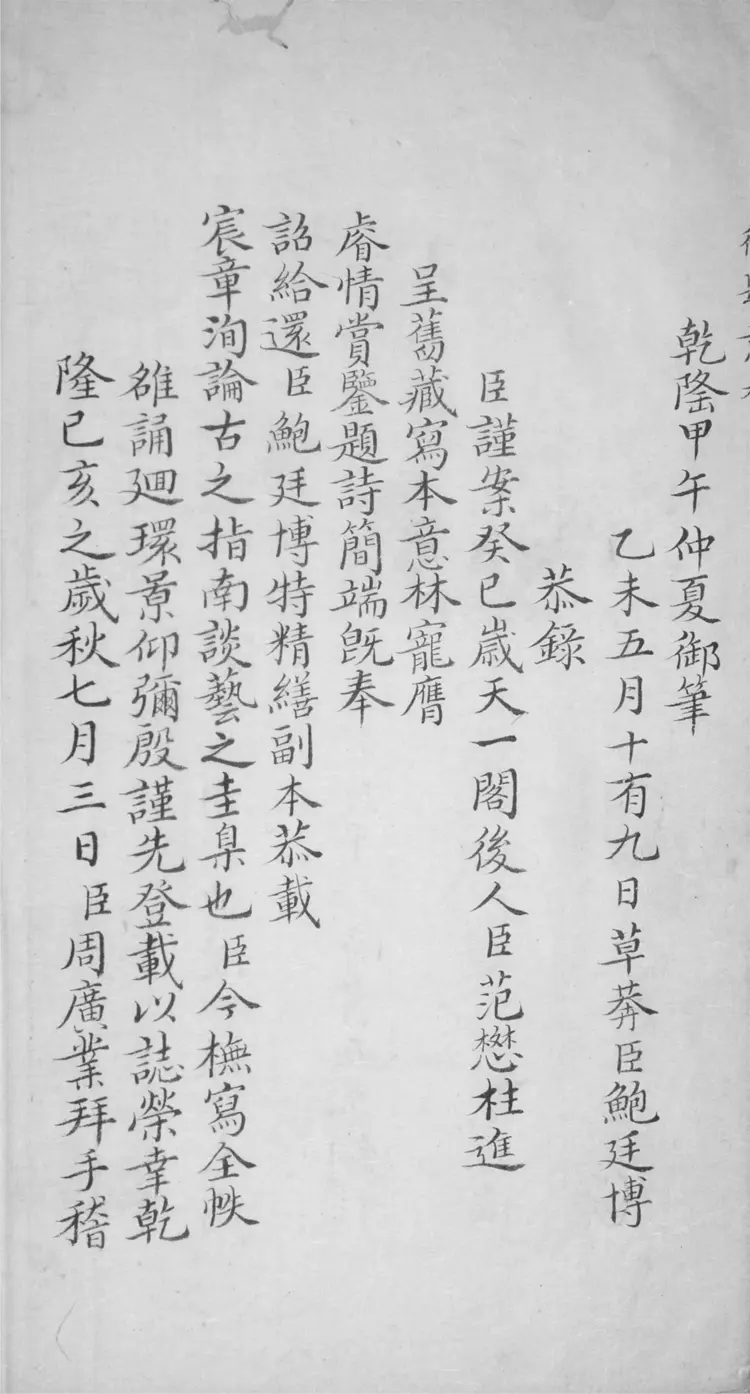 乾隆甲午仲夏御筆
乙未五月十有九日草莽臣鮑廷博
恭錄
臣謹案癸巳歲天一閣後人臣范懋柱進
呈舊藏寫本意林寵膺
睿情賞鑒題詩簡端旣奉
詔給還臣鮑廷博特精繕副本恭載
宸章洵論古之指南談藝之圭臬也臣今橅寫全帙
雒誦迴環景仰彌殷謹先登載以誌榮幸乾
隆己亥之歲秋七月三日臣周廣業拜手稽